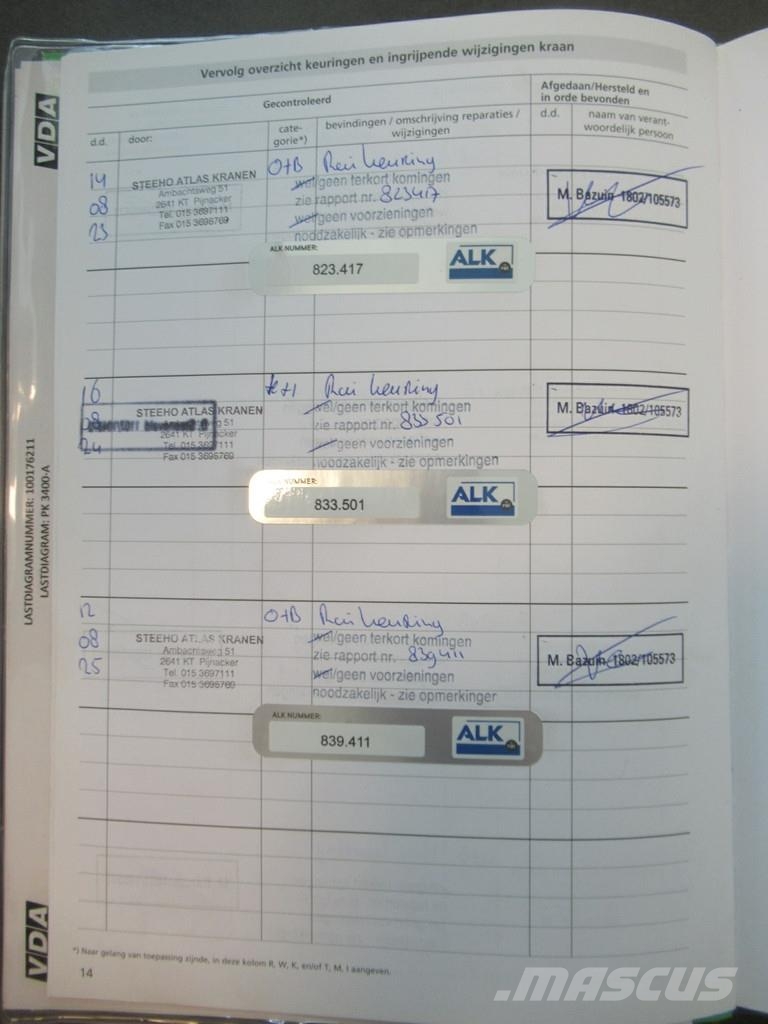 Vervolg overzicht keuringen en ingrijpende wijzigingen kraan
Gecontroleerd
Afgedaan/Hersteld en
in orde bevonden
d.d.
door:
cate-
gorie*)
bevindingen / omschrijving reparaties /
wijzigingen
d.d.
naam van verant-
woordelijk persoon
14
08
23
STEEHO ATLAS KRANEN
Ambachtsweg 51
2641 KT Pijnacker
Tel. 015 3697111
Fax 015 3695769
O+B
keuring
wel/geen terkort komingen
zie rapport nr. 823417
wel/geen voorzieningen
noodzakelijk - zie opmerkingen
M. Bazuin 1802/105573
ALK NUMMER:
823.417
ALK
16
08
24
STEEHO ATLAS KRANEN
2641 KT Pijnacker
Tel. 015 3697111
Fax 015 3695769
keuring
wel/geen terkort komingen
zie rapport nr. 833501
wel/geen voorzieningen
noodzakelijk - zie opmerkingen
M. Bazuin 1802/105573
NUMMER:
833.501
ALK
12
08
25
STEEHO ATLAS KRANEN
Ambachtsweg 51
2641 KT Pijnacker
Tel. 015 3697111
Fax 015 3695769
O+B
keuring
wel/geen terkort komingen
zie rapport nr. 839411
wel/geen voorzieningen
noodzakelijk - zie opmerkinger
M. Bazuin 1802/105573
ALK NUMMER:
839.411
ALK
*) Naar gelang van toepassing zijnde, in deze kolom R, W, K, en/of T, M, I aangeven.
14
VDA
LASTDIAGRAMNUMMER: 100176211
LASTDIAGRAM: PK 3400-A
VDA
.MASCUS